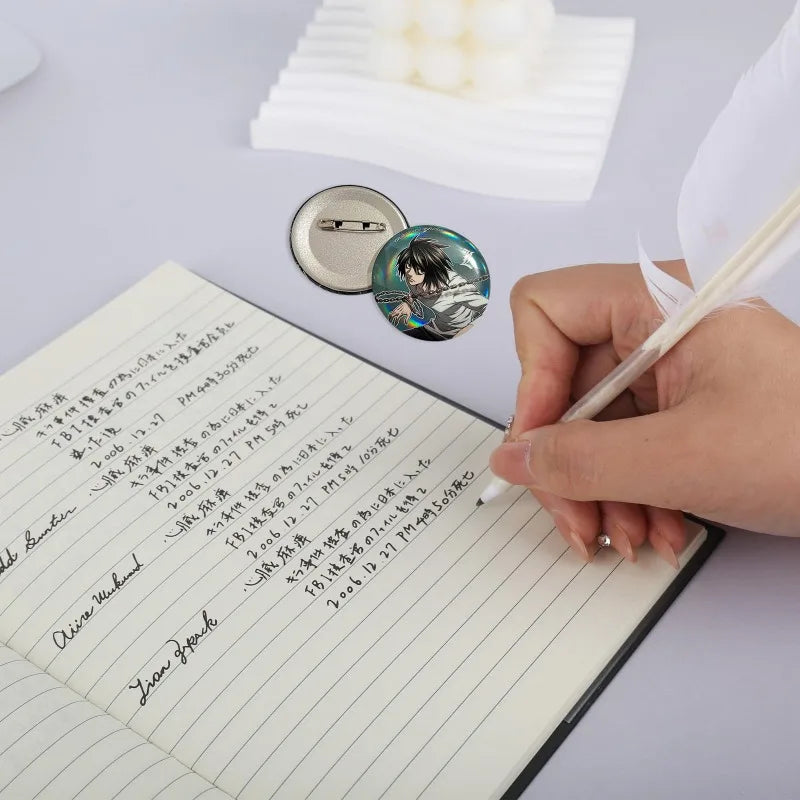 心臓麻痺
キラ事件捜査の為に日本に入った
FBI捜査官のファイルを捜査官全員
2006.12.27 PM 4時30分死亡
心臓麻痺
キラ事件捜査の為に日本に入った
FBI捜査官のファイルを得て
2006.12.27 PM 5時死亡
心臓麻痺
キラ事件捜査の為に日本に入った
FBI捜査官のファイルを得て
2006.12.27 PM 5時10分死亡
Lian
心臓麻痺
キラ事件捜査の為に日本に入った
FBI捜査官のファイルを得て
2006.12.27 PM 4時50分死亡